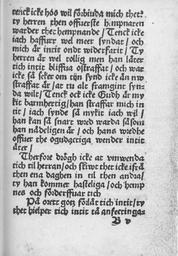 tenck icke höö wil förhiuda mich thet
ty herren then offuerste hempnaren
warder thet hempnande / Tenck icke
iach haffuer wel meer syndat / och
mich är intit ondt widerfarit / Ty
herren är wel rollig men han läter
tich intit bliffua ostraffat / och war
icke så seker om tijn synd icke än nw
straffat är / at tu alt framgint syn
da wilt / Tenck ock icke Gudh är my
kit barmhertig / han straffar mich in
tit / iach synde så mykit iach wil /
han kan så snart wred warda såsom
han nådeligen är / och hans wredhe
offuer the ogudactiga wender intit
åter /
Therfore drögh icke at vmwenda
tich til herran / och skiwt thet icke ifrå
then ena daghen in til then andra /
ty han kommer hasteliga / och hemp
nes och förderffuar tich
På oret gotz förlåt tich intit / ty
thet hielper tich intit tå anfectninga
B v